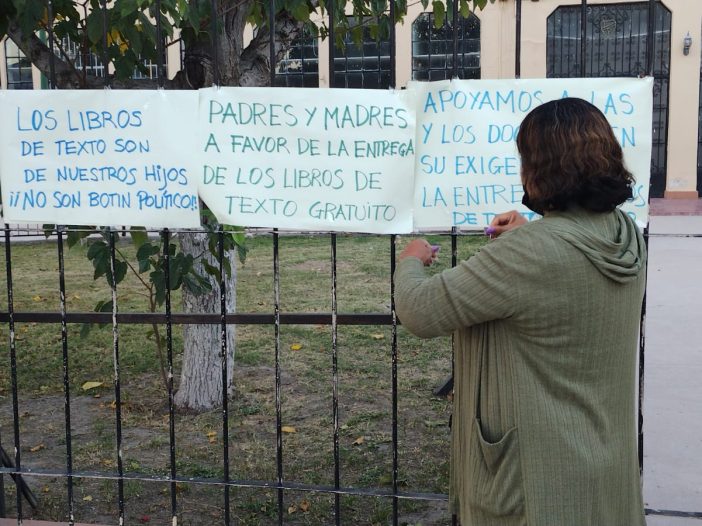 LOS LIBROS
DE TEXTO SON
DE NUESTROS HIJOS
¡¡NO SON BOTIN POLÍTICO!!
PADRES Y MADRES
A FAVOR DE LA ENTREGA
DE LOS LIBROS DE
TEXTO GRATUITO
APOYAMOS A LAS
Y LOS
SU
LA
DE